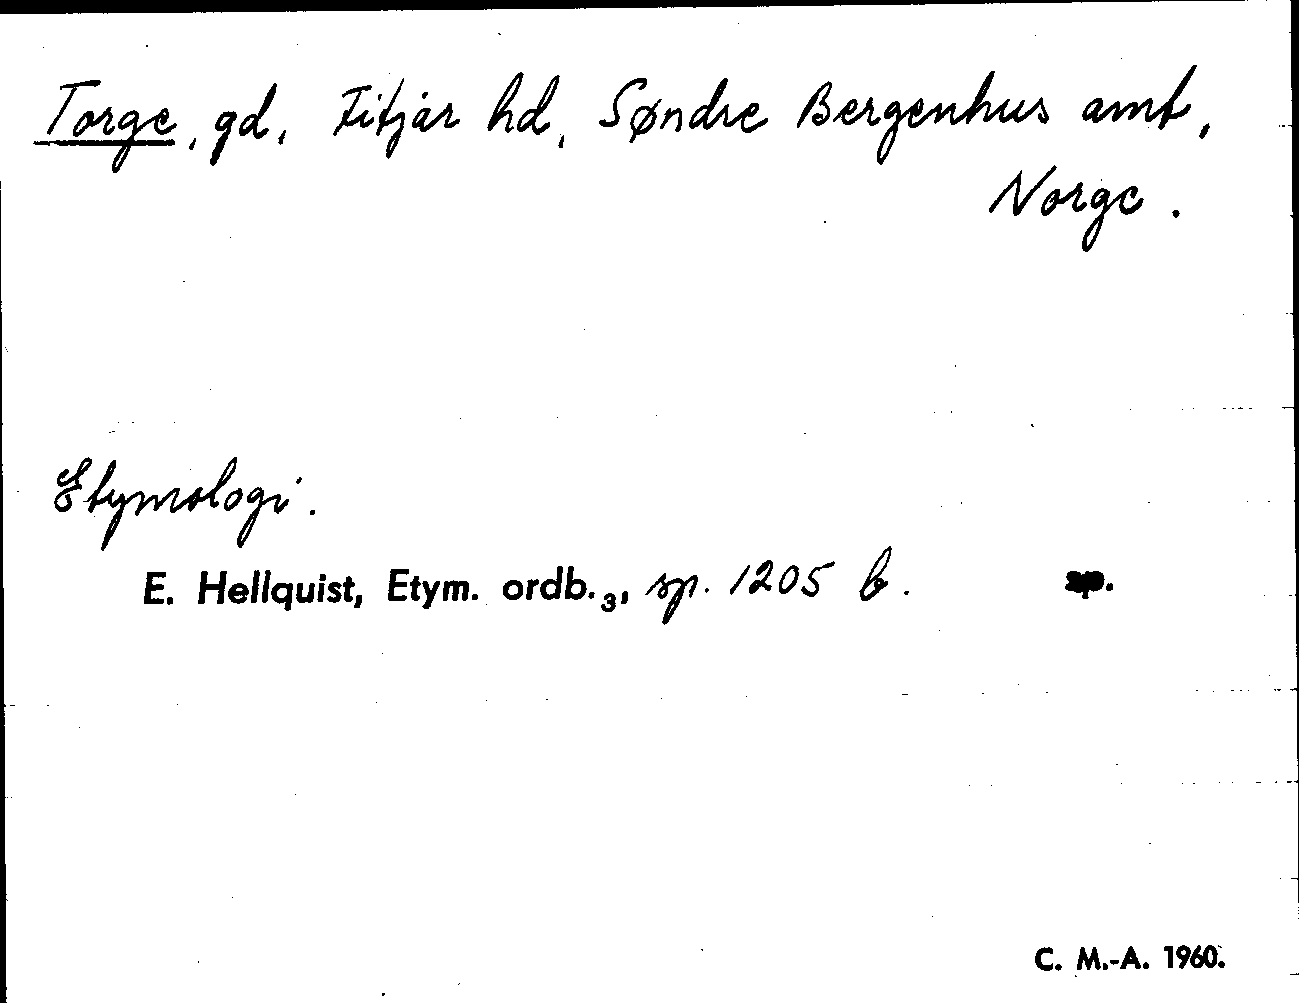 Torge, gd, Fitjar hd, Søndre Bergenhus amt,
Norge.
Etymologi.
E. Hellquist, Etym. ordb.₃, sp. 1205 b. sp.
C. M.-A. 1960.